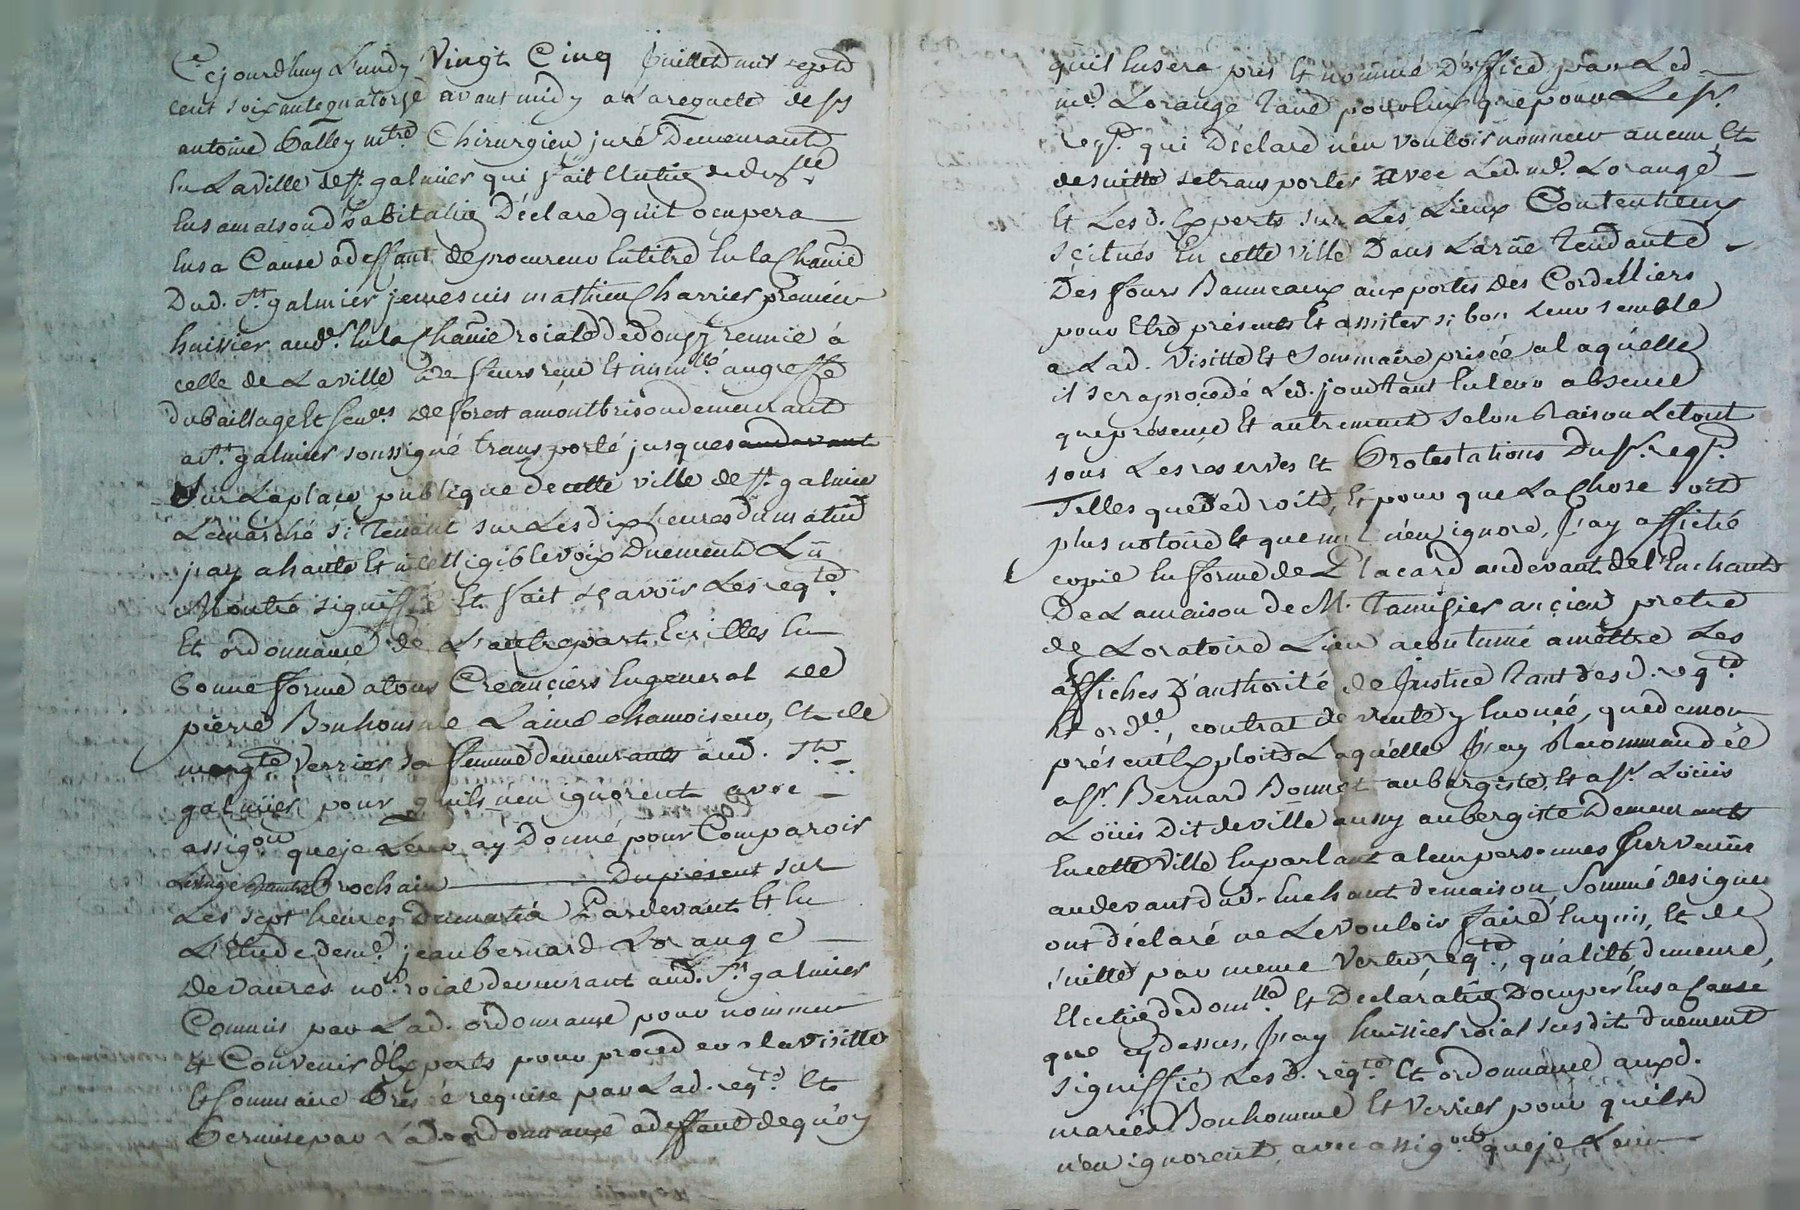 Cejourdhuy Lundy Vingt Cinq Juillet mil sept
cent soixante quatorze avant midy a la requete de sr
antoine Galley mtre Chirurgien juré Demeurant
En La ville de st galmier qui fait Election de
En sa maison d'habitation Déclare qu'il ocupera
En sa Cause a deffaut de procureur En titre En la Chanie
Dud. St galmier je me suis mathieu Charrier premier
huissier aud. En la Chanie roiale de donzy reunie à
celle de La ville de feurs reçu Et immlé au greffe
du baillage Et senés de forest a montbrison demeurant
a St galmier soussigné transporté jusques au devant
Sur La place publique de cette ville de st galmier
Le marché si Tenant sur Les dix heures du matin
j'ay a haute Et intelligible voix Duement Lu
Montré signiffié Et fait sçavoir Les reqte
Et ordonnance de L'autre part Ecrittes En
bonne forme a tous Creanciers En general de
pierre Bonhomme L'ainé chamoiseur, Et de
margte Verrier sa femme demeurants aud. St
galmier pour qu'ils n'en ignorent avec
assigon que je Leur ay Donné pour Comparoir
Prochain Du present sur
Les sept heures Du matin Pardevant Et En
L'Etude de me jean bernard Lorange
devaures nore roial demeurant aud. St galmier
Commis par Lad. ordonnance pour nommer
Et Convenir d'Experts pour proceder a la visitte
Et Sommaire Prisée requise par Lad. reqte Et
Permise par Lad. ordonnance a deffaut de quoy
qu'il En sera pris Et nommé D'office par Led.
me Lorange Tant pour Eux que pour Le sr
reqt qui Déclare n'en vouloir nommer aucun Et
de suitte se transporter avec Led. me Lorange
Et Les d. Experts sur Les Lieux Contentieux
scitués En cette ville Dans La rue Tendante
Des fours Banneaux aux portes des Cordelliers
pour Etre présents Et assister si bon Leur semble
a Lad. Visitte Et Sommaire prisée a laquelle
il sera procedé Led. jour Tant En leur absence
que présence Et autrement selon Raison Le tout
sous Les reserves Et Protestations Du sr reqt
Telles que De droit, Et pour que La Chose soit
plus notoire Et que nul n'en ignore, J'ay affiché
copie En forme de Placard au devant de l'Enchant
De La maison de M. Tamisier ancien pretre
de Loratoire Lieu acoutumé a mettre Les
affiches D'authorité de Justice Tant des d. reqte
Et ordce, contrat de vente y Enoncé, que de mon
présent Exploit Laquelle J'ay Recommandée
a sr Bernard Bonnet aubergiste, Et a sr Loüis
Loüis Dit deville aussy aubergiste Demeurants
En cette ville En parlant a leur personnes Survenües
au devant dud. Enchant de maison, Sommé de signer
ont déclaré ne Le vouloir faire, Enquis, Et de
suitte par meme Vertu, reqte, qualité, demeure,
Election de domlle Et Déclaration D'ocuper En sa Cause
que cy dessus, J'ay huissier roial susdit duement
signiffié Les d. reqte Et ordonnance aux d.
mariés Bonhomme Et Verrier pour qu'ils
n'en ignorent avec assigon que je Leur